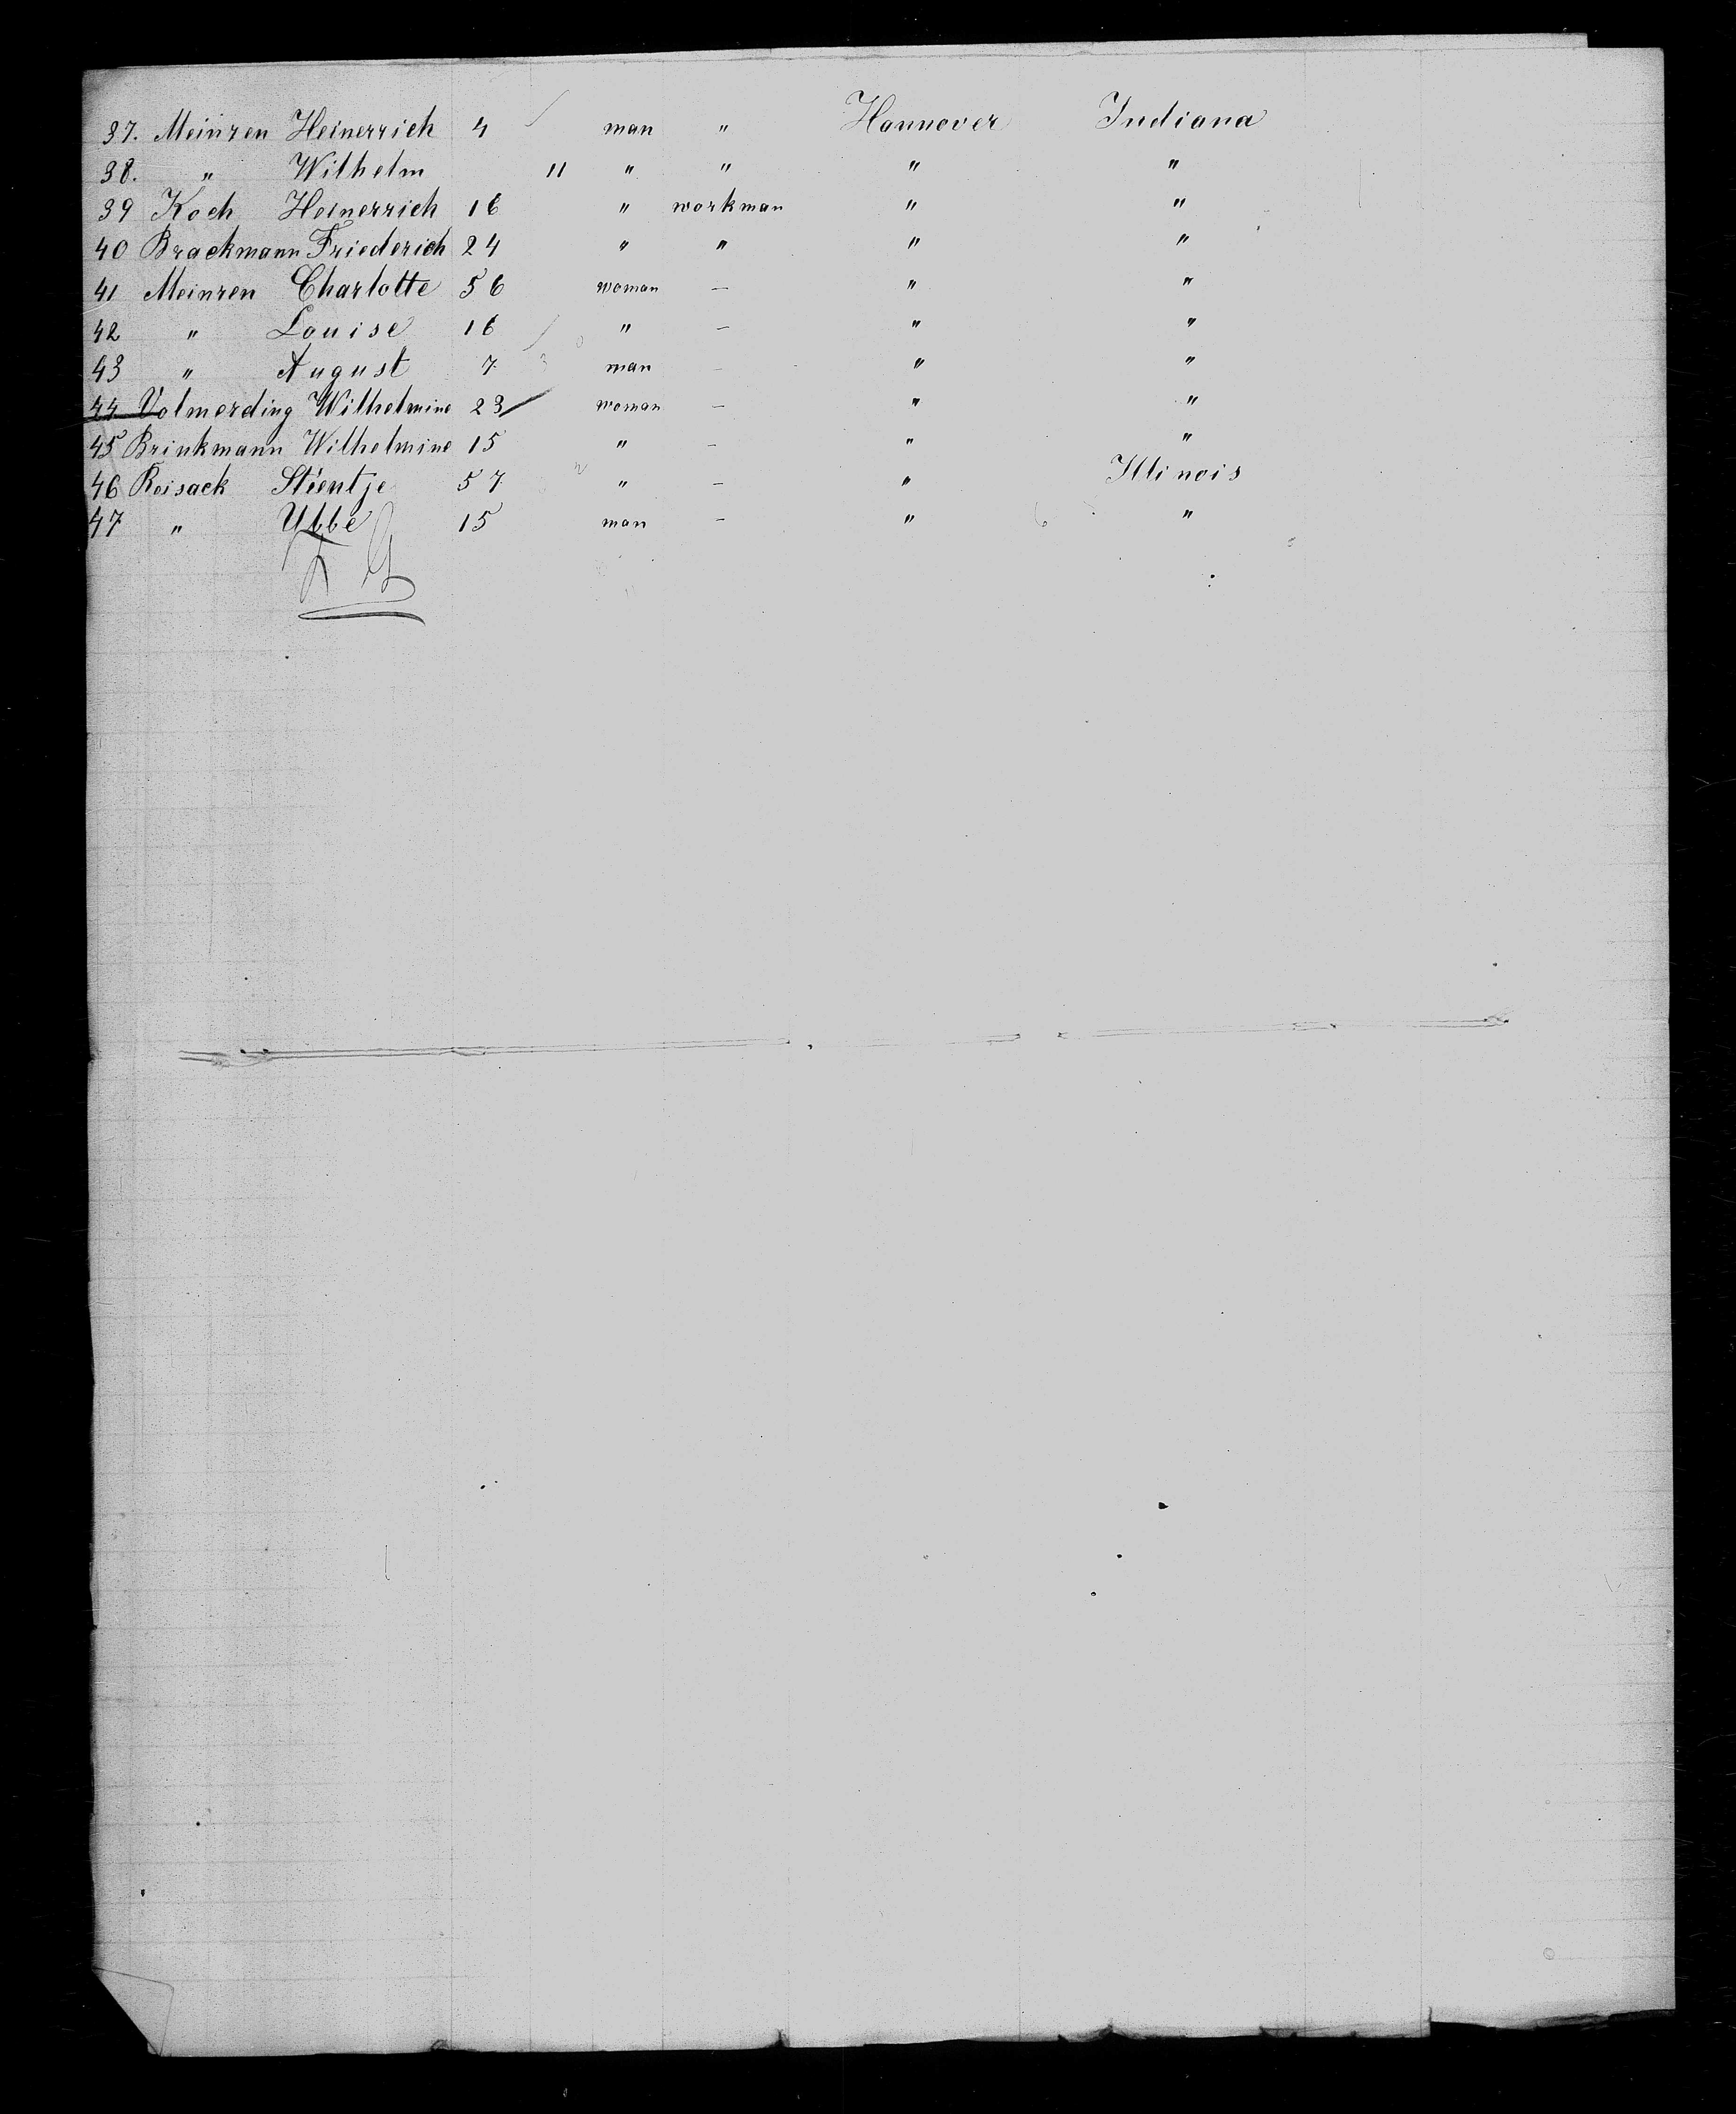 37. Meinzen Heinerrich 4 man " Hannover Indiana
38. " Wilhelm 11 " " " "
39 Koch Heinerrich 16 " workman " "
40 Brackmann Friederich 24 " " " "
41 Meinzen Charlotte 56 woman – " "
42 " Louise 16 " – " "
43 " August 7 man – " "
44 Volmerding Wilhelmine 23 woman – " "
45 Brinkmann Wilhelmine 15 " – " "
46 Reisack Stientje 57 " – " Illinois
47 " Ubbe 15 man – " "